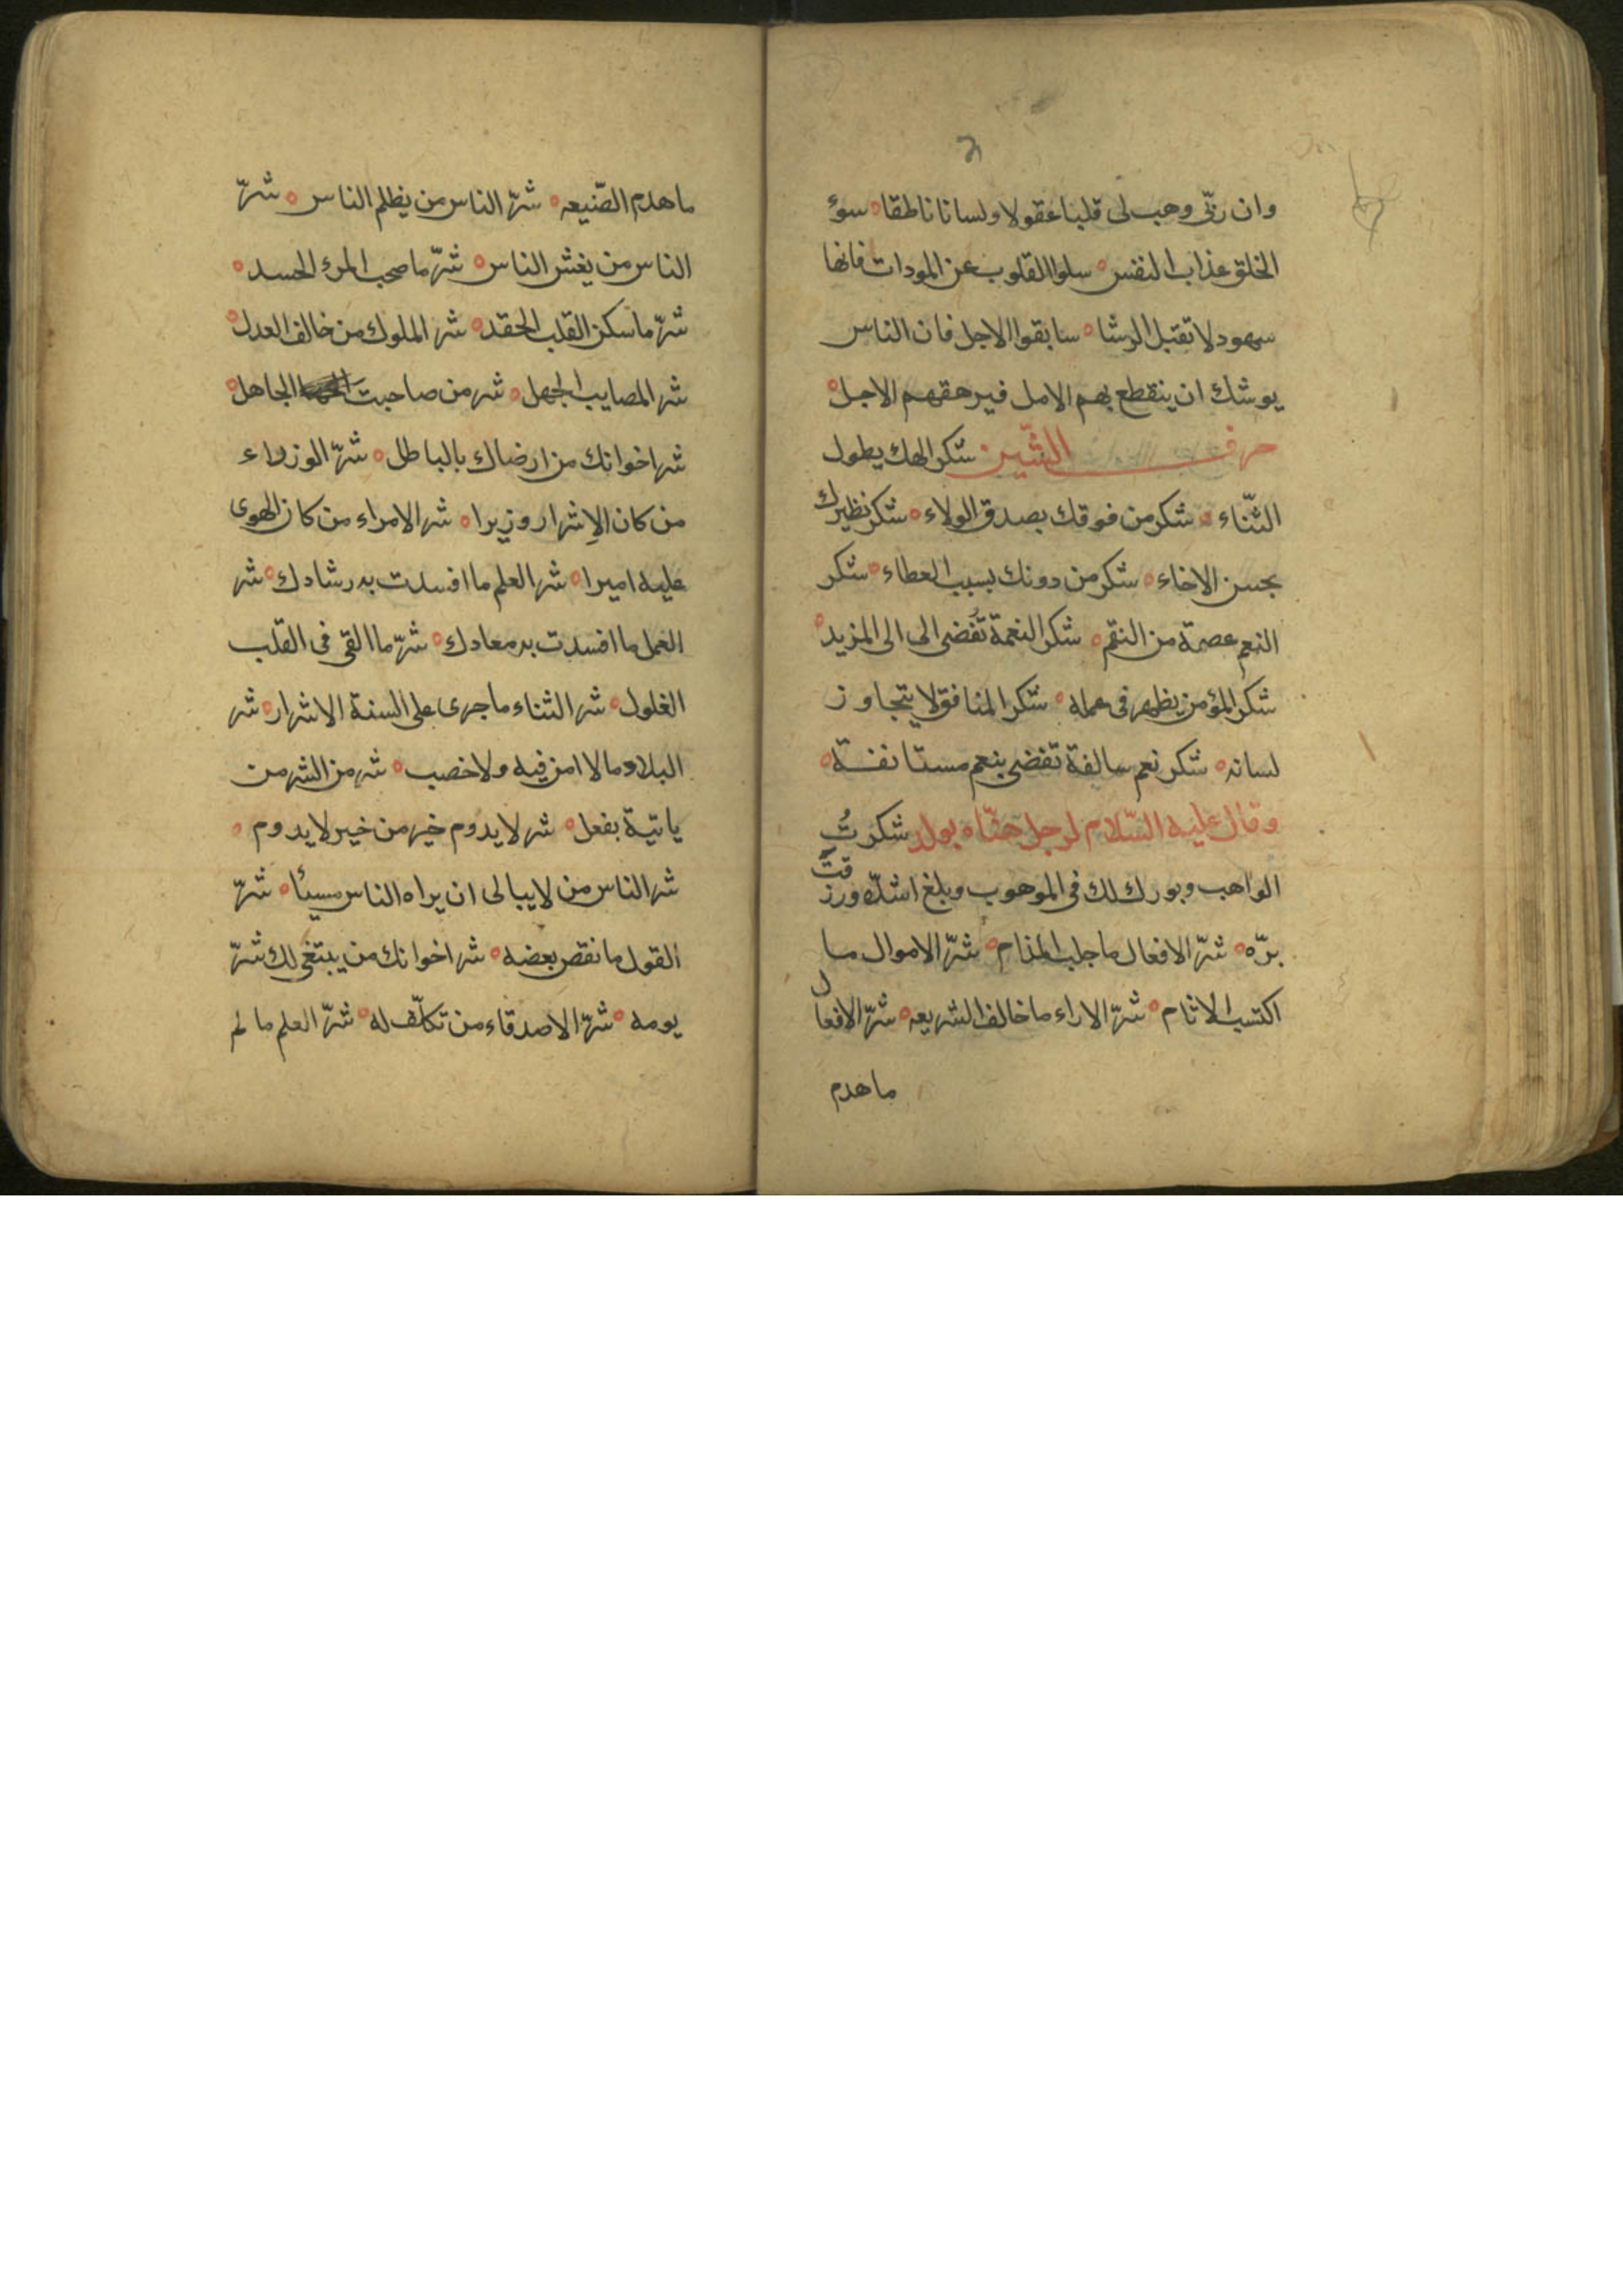 وان ربّی وهب لی قلبا عقولا ولسانا ناطقا ه سوء
الخلق عذاب النفس ه سلوا القلوب عن المودات فانها
سهود لا تقبل الرشا ه سابقوا الاجل فان الناس
یوشك ان ینقطع بهم الامل فیرهقهم الاجل ه
حرف الشّین شكر الهك یطول
الثّناء ه شكر من فوقك بصدق الولاء ه شكر نظیرك
بحسن الاخاء ه شكر من دونك بسبب العطاء ه شكر
النعم عصمة من النقم ه شكر النعمة تُفضی الی الی المزید ه
شكر المؤمن یظهر فی عمله ه شكر المنافق لا یتجاوز
لسانه ه شكر نعم سالفة تفضی بنعم مستانفة ه
وقال علیه السّلام لرجل هنّاه بولد شكرتُ
الواهب وبورك لك فی الموهوب وبلغ اشدّه ورزقتَ
برّه ه شرّ الافعال ما جلب المذام ه شرّ الاموال ما
اكتسب الاثام ه شرّ الاراء ما خالف الشریعه ه شرّ الافعال
ما هدم
ما هدم الصّنیعه ه شرّ الناس من یظلم الناس ه شرّ
الناس من یغش الناس ه شرّ ما صحب المرء الحسد ه
شرّ ما سكن القلب الحقد ه شر الملوك من خالف العدل ه
شر المصایب الجهل ه شر من صاحبت الجاهل ه
شر اخوانك من ارضاك بالباطل ه شرّ الوزراء
من كان الاِشرار وزیرا ه شر الامراء من كان الهوی
علیه امیرا ه شر العلم ما افسدت به رشادك ه شر
العمل ما افسدت به معادك ه شرّ ما القی فی القلب
الغلول ه شر الثناء ما جری علی السنة الاشرار ه شر
البلاد ما لا امن فیه ولا خصب ه شر من الشر من
یاتیة بفعل ه شر لا یدوم خیر من خیر لا یدوم ه
شر الناس من لا یبالی ان یراه الناس مسیئا ه شرّ
القول ما نقض بعضه ه شر اخوانك من یبتغی لك شرّ
یومه ه شرّ الاصدقاء من تكلّف له ه شرّ العلم ما لم